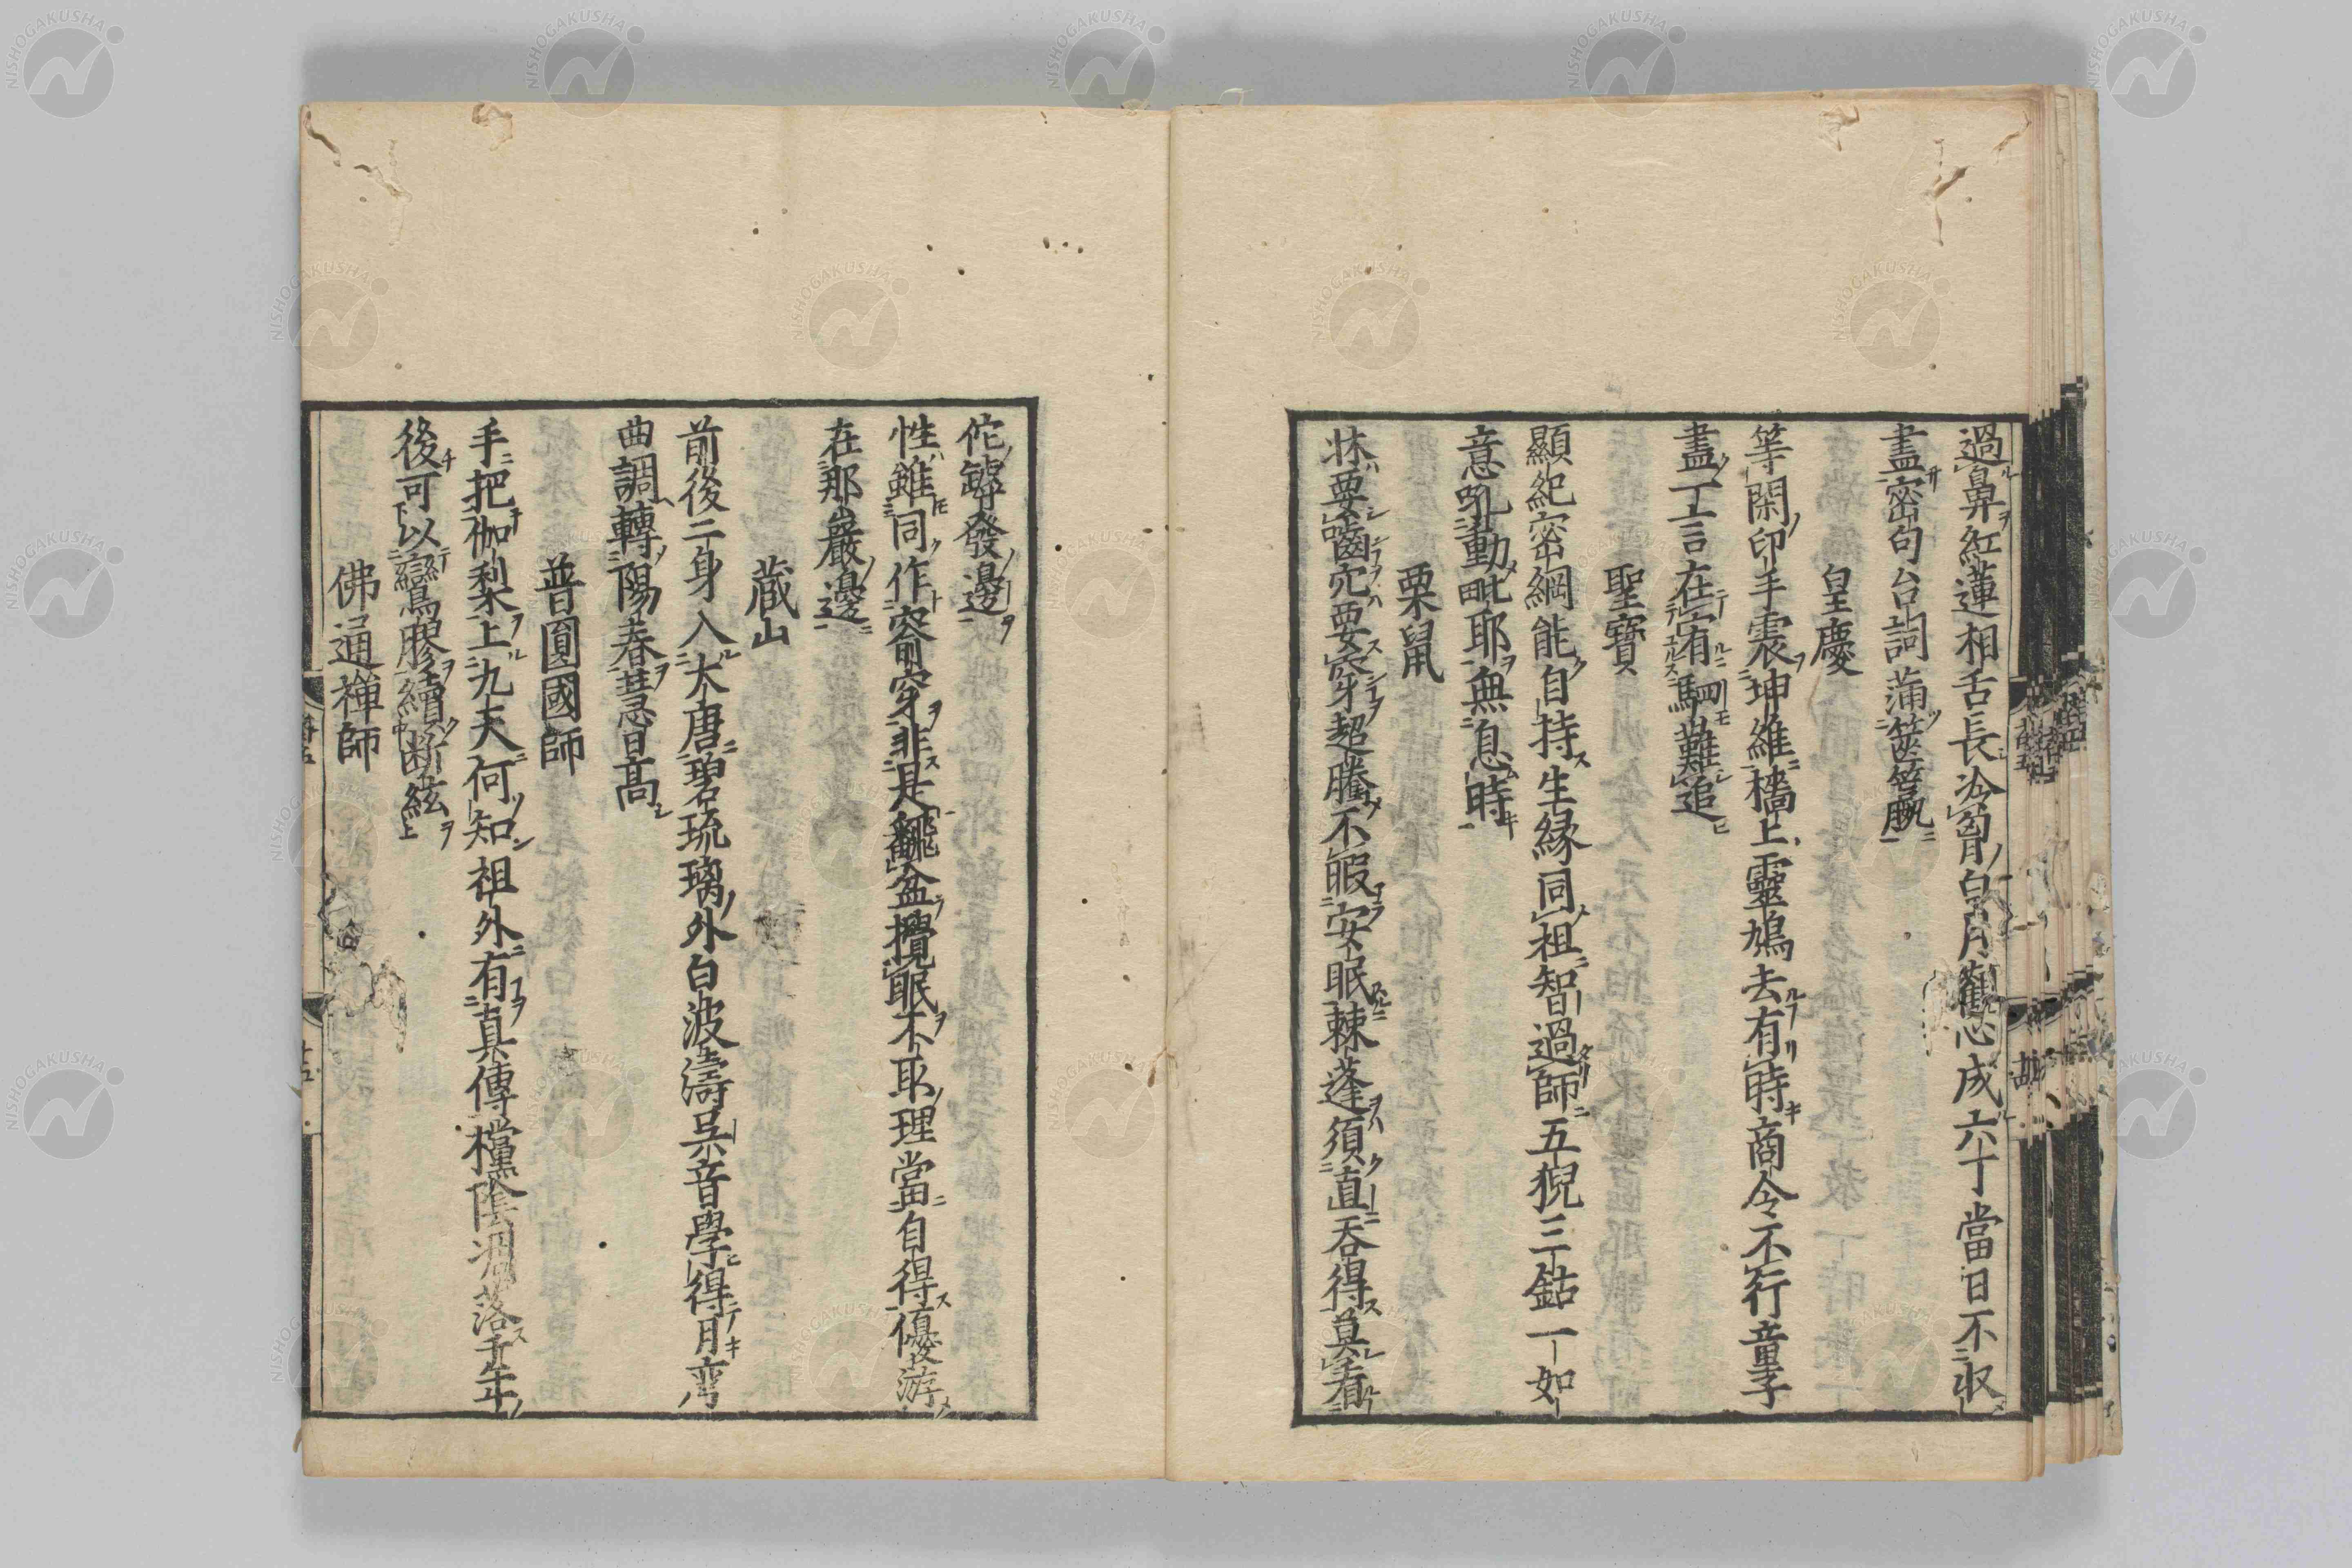 過鼻紅蓮相舌長洽胷白月觀心成六丁當日不収
盡密句台詞蒲篋籯
皇慶
等閑印手震坤維檣上靈鳩去有時商令不行童子
盡一言在宥駟難追
聖寶
顯紀密綱能自持生縁同祖智過師五猊三鈷一如
意吼動毗耶無息時
栗鼠
牀要齧穴要穿超騰不暇安眠棘蓬須直吞得莫看
佗罅發邊
性雖同作窬穿非是翻盆攪眠不耿理當自得優游
在那巖邊
蔵山
前後二身入大唐碧琉璃外白波濤吴音學得月弯
曲調轉陽春慧日高
普圓國師
手把伽梨上九天何知祖外有真傳檔陰凋落千年
後可以鸞膠續斷絃
佛通禅師